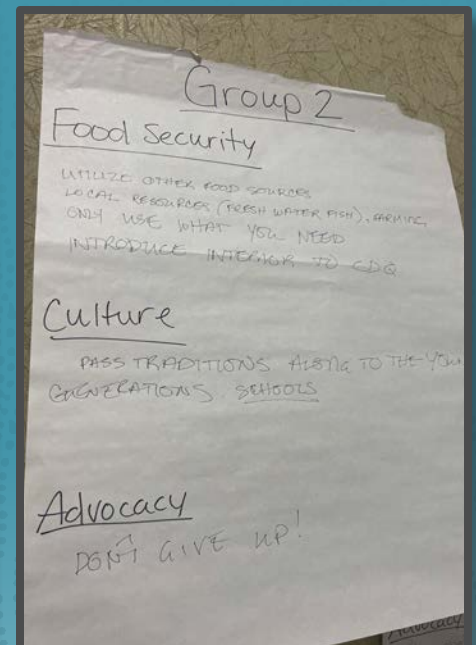 Group 2
Food Security
UTILIZE OTHER FOOD SOURCES
LOCAL RESOURCES (FRESH WATER FISH), FARMING
ONLY USE WHAT YOU NEED
INTRODUCE INTERIOR TO CDQ
Culture
PASS TRADITIONS ALONG TO THE
GENERATIONS. SCHOOLS
Advocacy
DON'T GIVE UP!
Advocacy